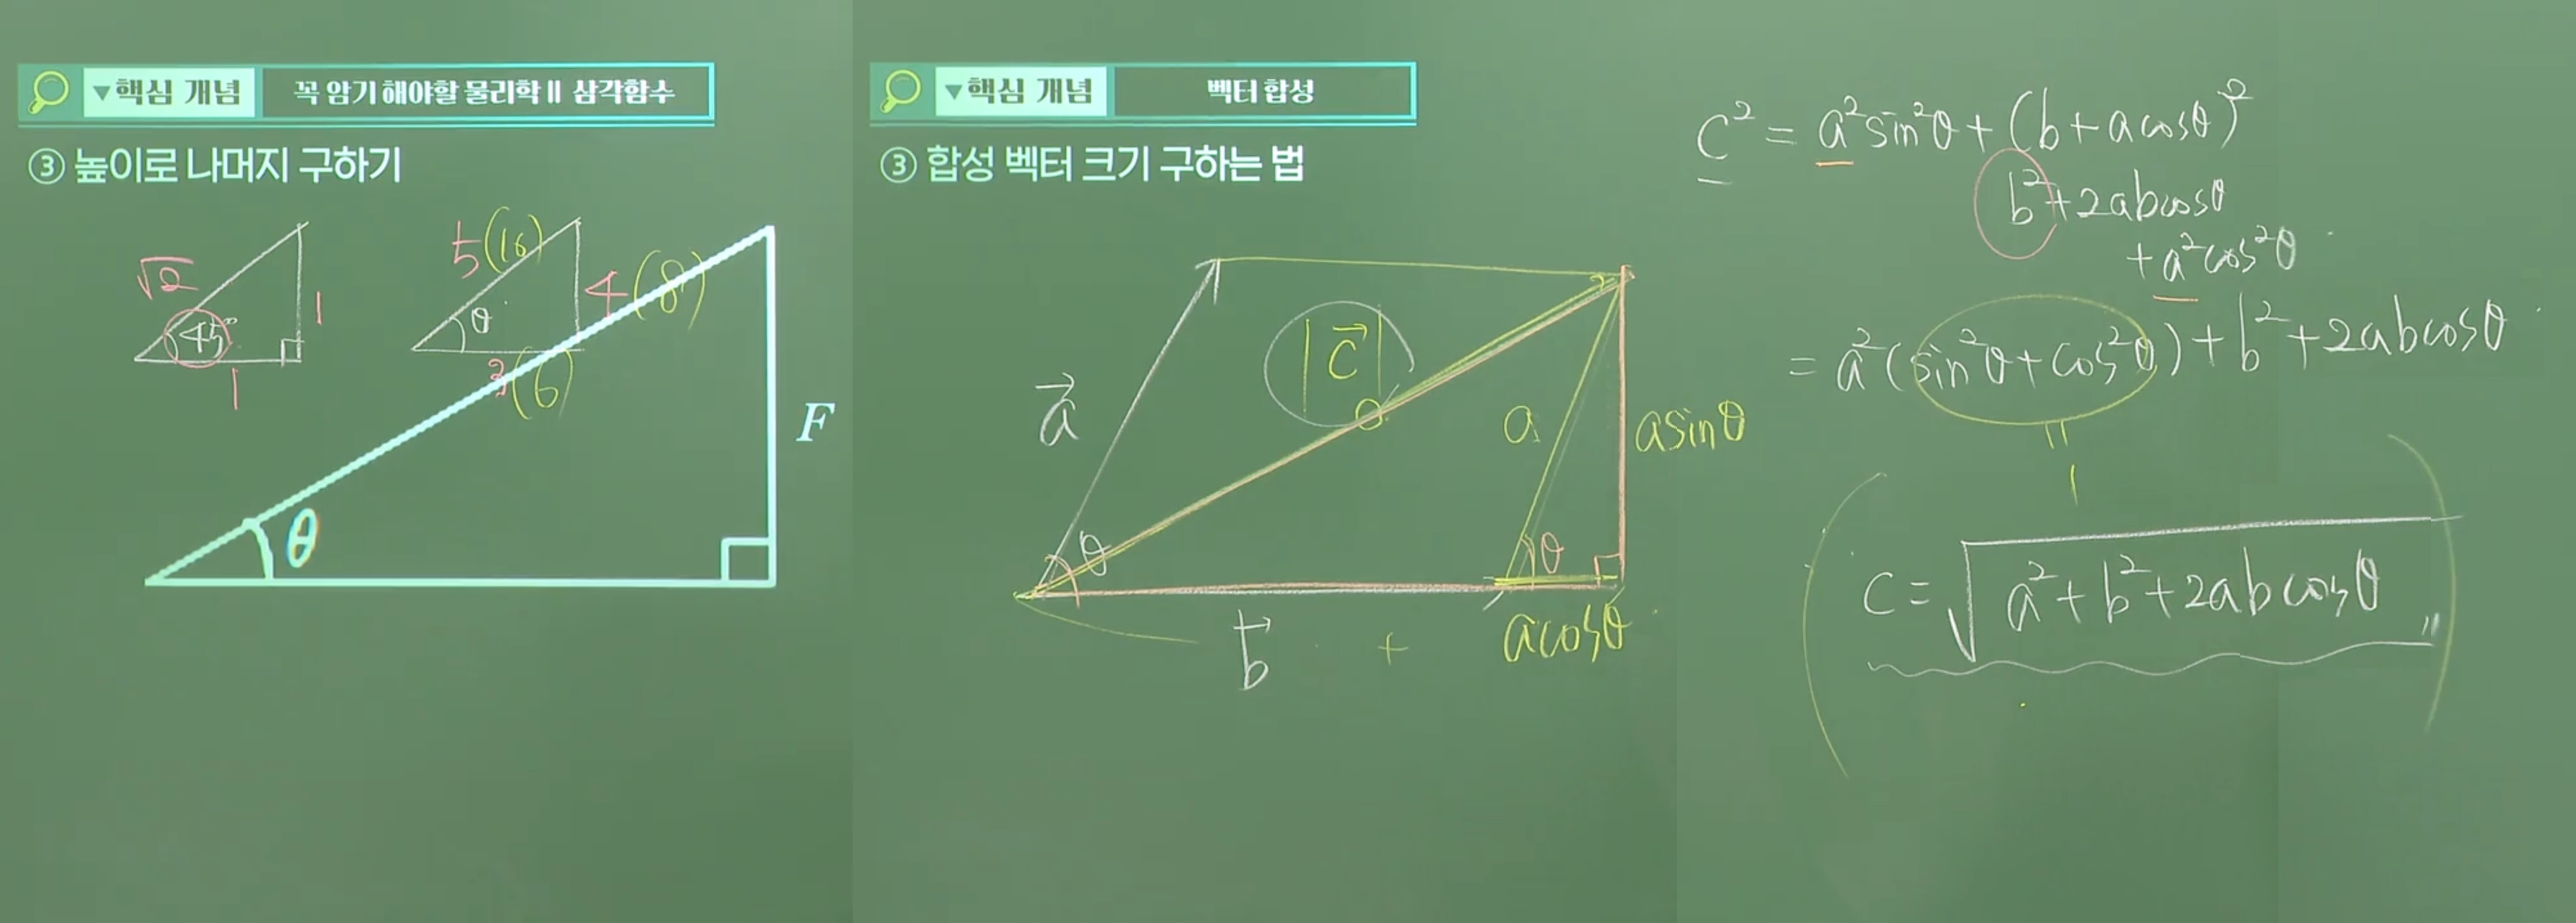 ▼핵심 개념
꼭 암기 해야할 물리학 II 삼각함수
③ 높이로 나머지 구하기
√2
45°
1
1
5(10)
θ
4(8)
3(6)
F
θ
▼핵심 개념
벡터 합성
③ 합성 벡터 크기 구하는 법
|c⃗|
a⃗
a
a sinθ
θ
θ
b⃗ + a cosθ
c² = a²sin²θ + (b + a cosθ)²
b² + 2ab cosθ
+ a²cos²θ
= a²(sin²θ + cos²θ) + b² + 2ab cosθ
=
1
c = √(a² + b² + 2ab cosθ)